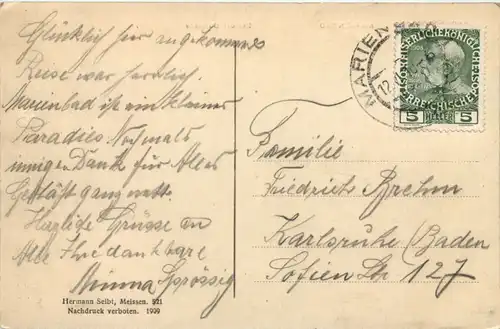 Glücklich hier angekommen
Reise war herrlich.
Marienbad ist ein kleines
Paradies. Nochmals
innigen Dank für Alles
Geschäft ganz nett.
Herzliche Grüsse an
Alle Ihre dankbare
Minna Sprössig
MARIENBAD
12
KAISERLICHE KÖNIGLICHE
ÖSTERREICHISCHE
5 HELLER 5
Familie
Friedrich Brehm
Karlsruhe (Baden
Sofien Str 127
Hermann Seibt, Meissen. 521
Nachdruck verboten. 1909